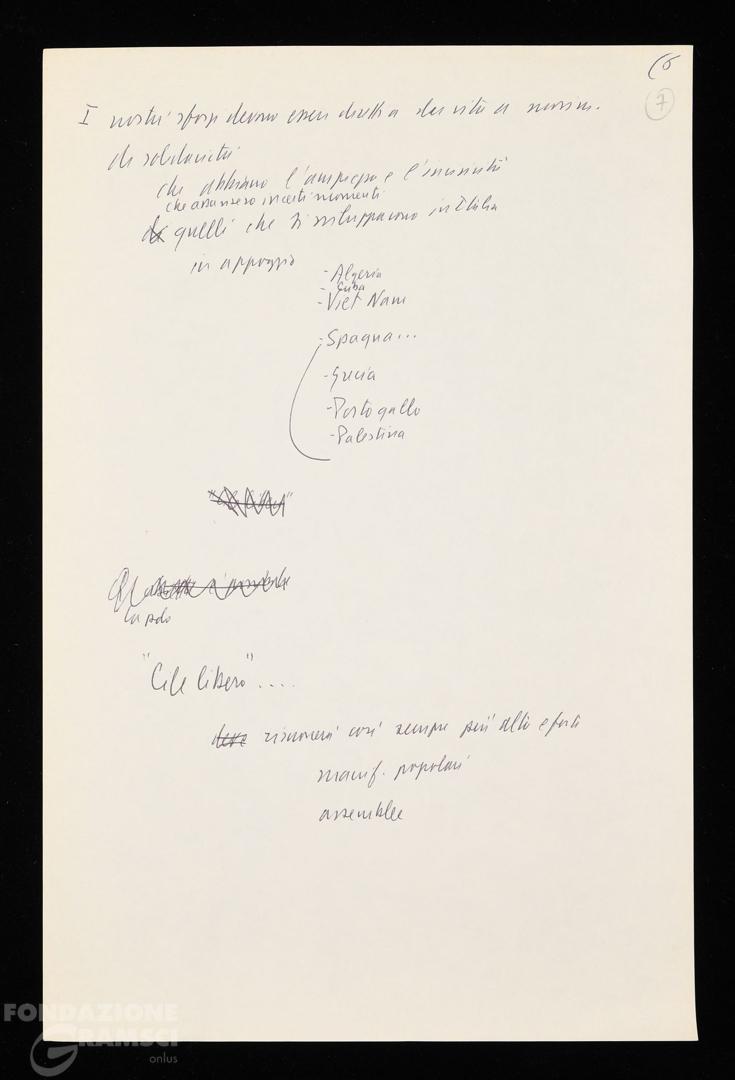 6
7
I nostri sforzi devono essere diretti a dar vita a movim.
di solidarietà
che abbiano l'ampiezza e l'intensità
che assunsero in certi momenti
di quelli che si svilupparono in Italia
in appoggio
- Algeria
- Cuba
- Viet Nam
- Spagna...
- Grecia
- Portogallo
- Palestina
La parola
"Cile libero"....
deve risuonerà così sempre più alto e forte
manif. popolari
assemblee
FONDAZIONE
GRAMSCI
onlus